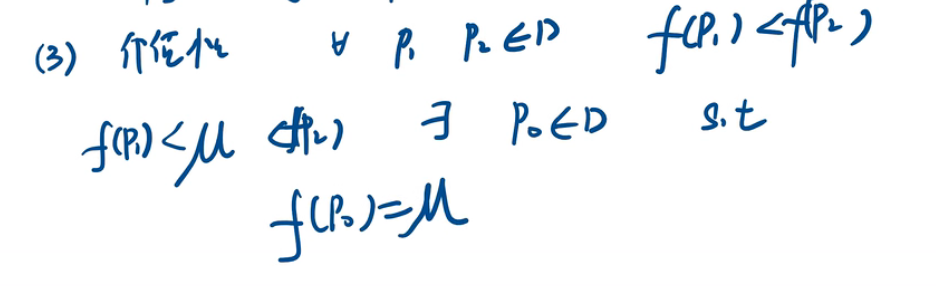 (3) 介值性 ∀ P₁ P₂∈D f(P₁)<f(P₂)
f(P₁)<μ<f(P₂) ∃ P₀∈D s.t
f(P₀)=μ